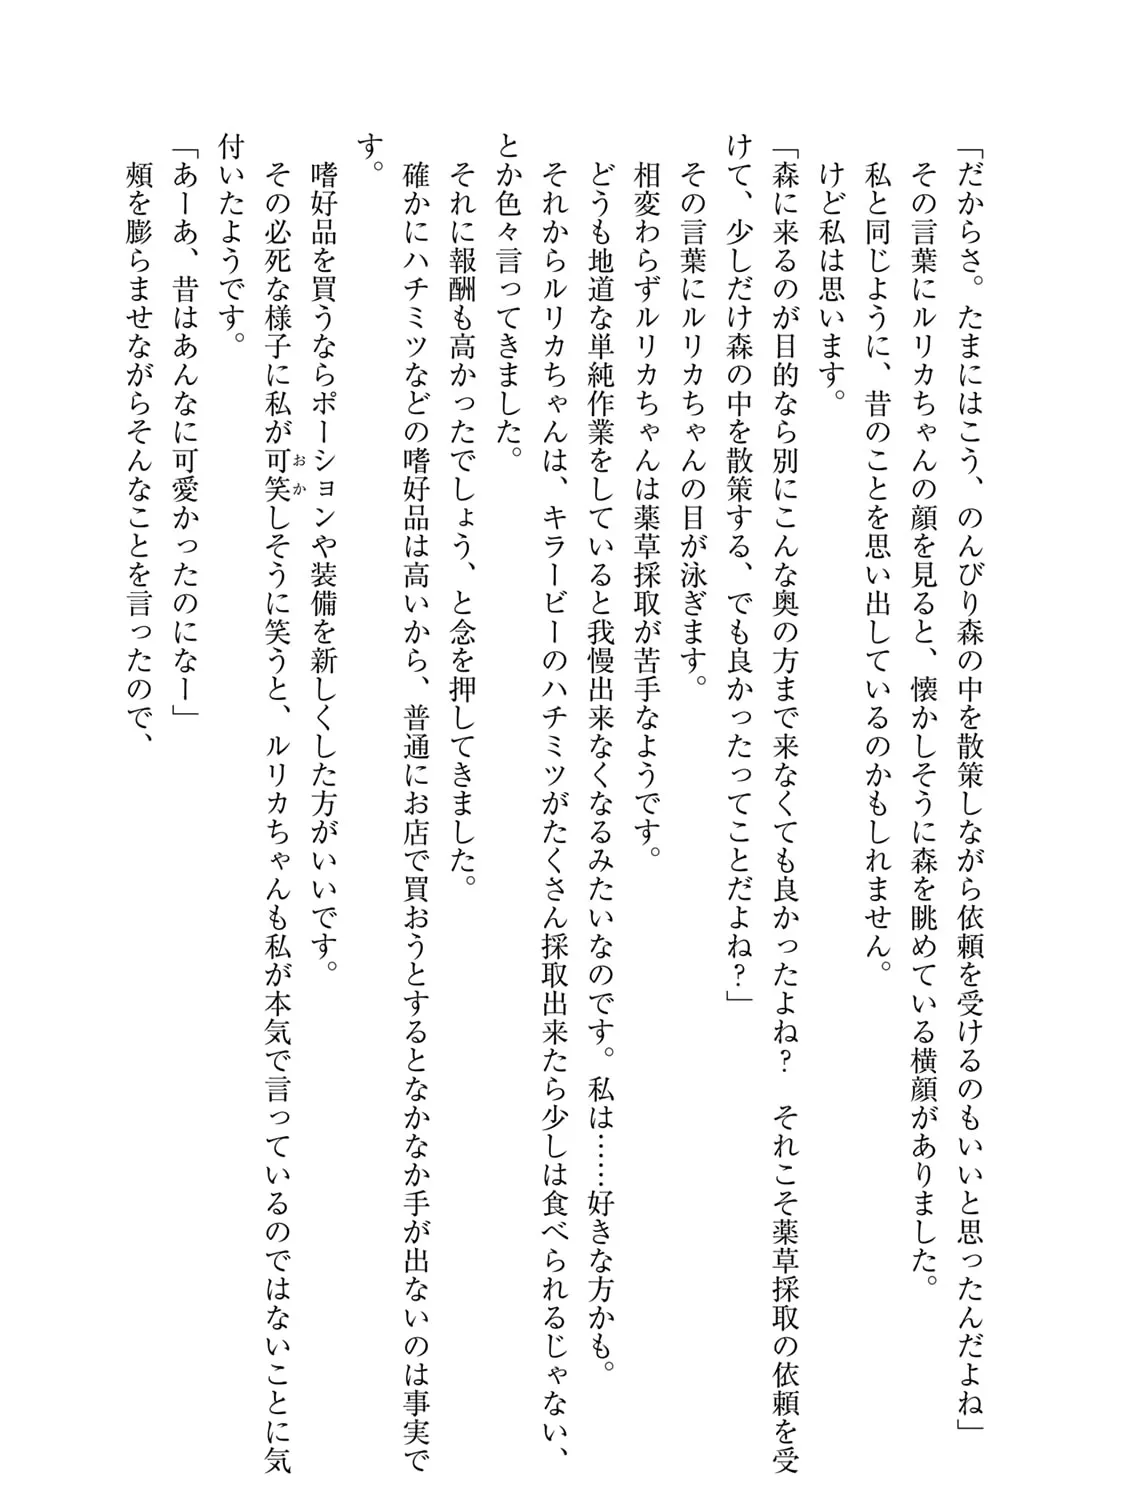 「だからさ。たまにはこう、のんびり森の中を散策しながら依頼を受けるのもいいと思ったんだよね」
その言葉にルリカちゃんの顔を見ると、懐かしそうに森を眺めている横顔がありました。
私と同じように、昔のことを思い出しているのかもしれません。
けど私は思います。
「森に来るのが目的なら別にこんな奥の方まで来なくても良かったよね？　それこそ薬草採取の依頼を受
けて、少しだけ森の中を散策する、でも良かったってことだよね？」
その言葉にルリカちゃんの目が泳ぎます。
相変わらずルリカちゃんは薬草採取が苦手なようです。
どうも地道な単純作業をしていると我慢出来なくなるみたいなのです。私は……好きな方かも。
それからルリカちゃんは、キラービーのハチミツがたくさん採取出来たら少しは食べられるじゃない、
とか色々言ってきました。
それに報酬も高かったでしょう、と念を押してきました。
確かにハチミツなどの嗜好品は高いから、普通にお店で買おうとするとなかなか手が出ないのは事実で
す。
嗜好品を買うならポーションや装備を新しくした方がいいです。
その必死な様子に私が可笑おかしそうに笑うと、ルリカちゃんも私が本気で言っているのではないことに気
付いたようです。
「あーあ、昔はあんなに可愛かったのになー」
頰を膨らませながらそんなことを言ったので、